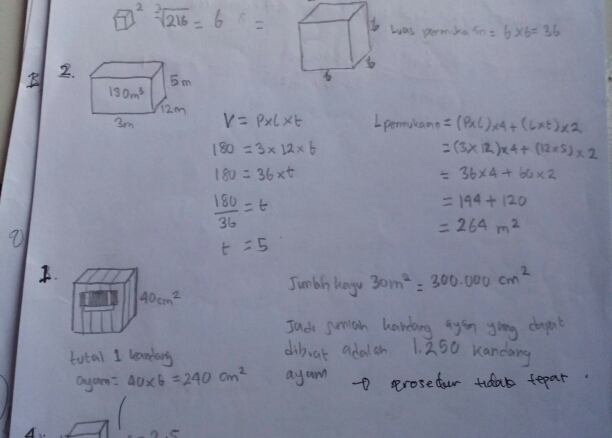 2 ∛216 = 6
6 6 6
Luas permukaan = 6 x 6 = 36
B 2. 180m³ 5m 12m 3m
V = P x L x t
180 = 3 x 12 x t
180 = 36 x t
180/36 = t
t = 5
L permukaan = (P x L) x 4 + (L x t) x 2
= (3 x 12) x 4 + (12 x 5) x 2
= 36 x 4 + 60 x 2
= 144 + 120
= 264 m²
1. 40 cm²
total 1 kandang
ayam = 40 x 6 = 240 cm²
Jumlah kayu 30 m² = 300.000 cm²
Jadi jumlah kandang ayam yang dapat
dibuat adalah 1.250 kandang
ayam → prosedur tidak tepat.
4.